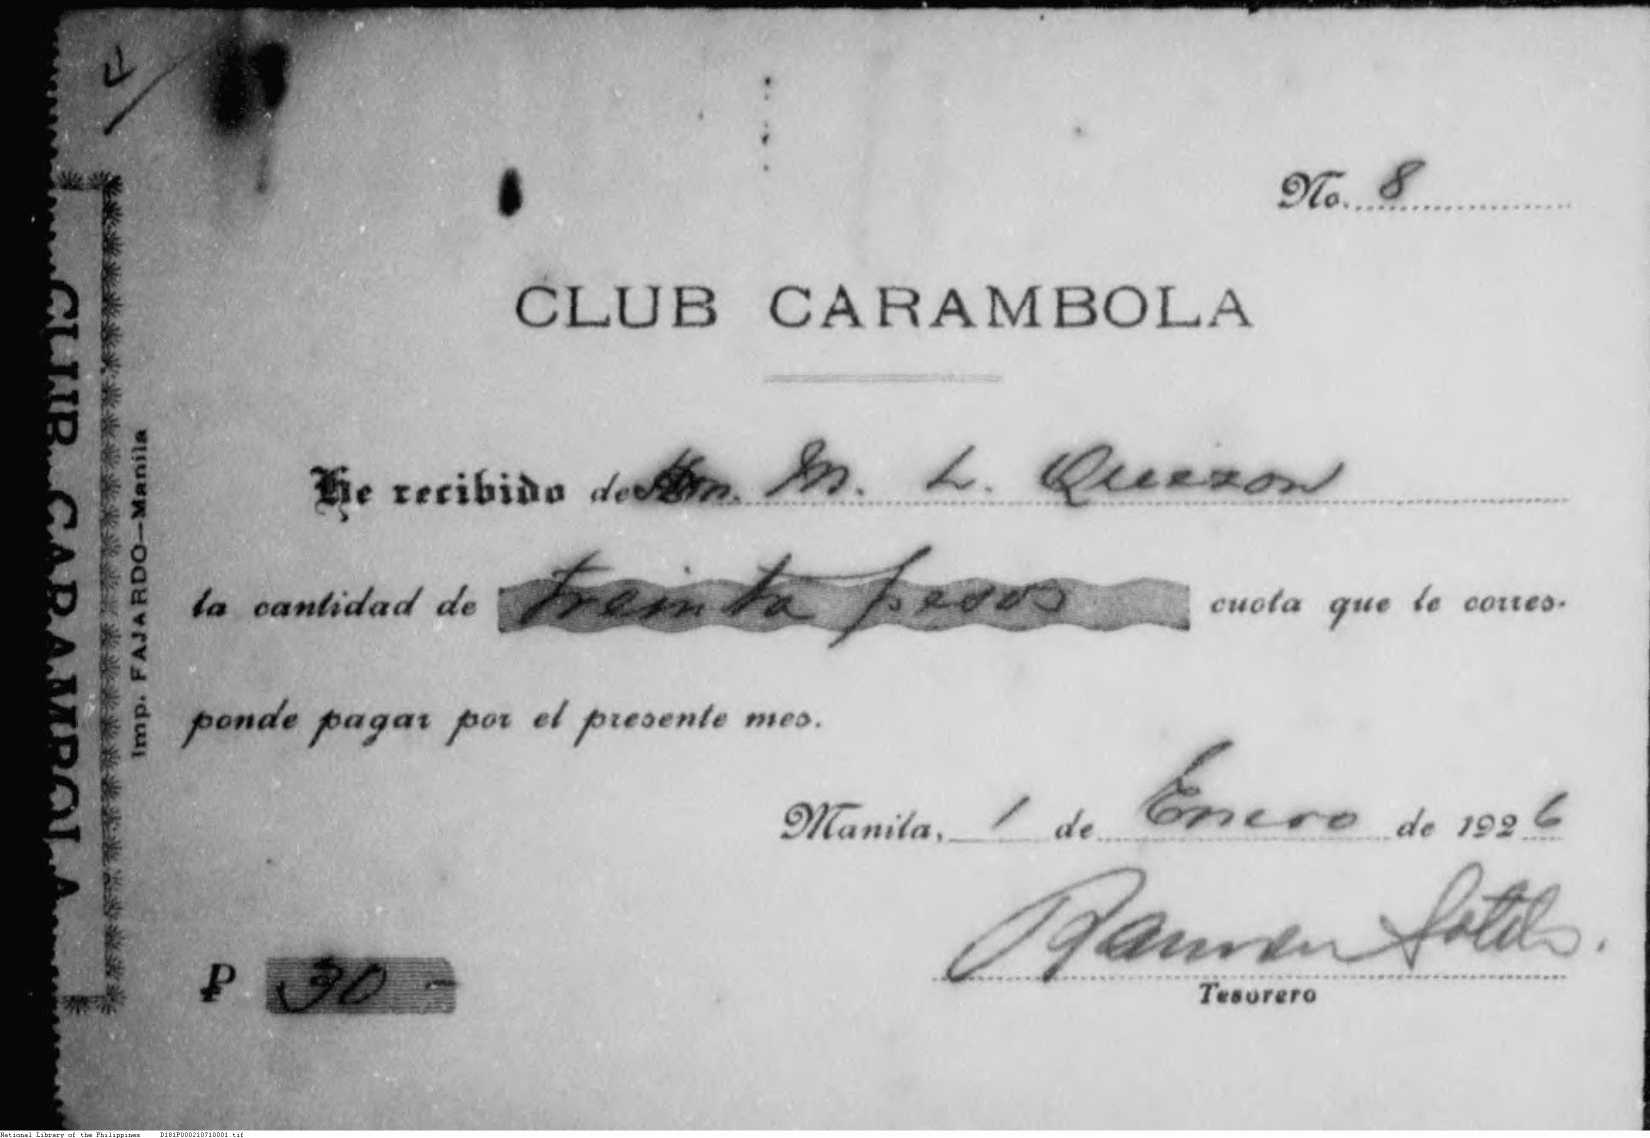 No. 8
CLUB CARAMBOLA
He recibido de Hon. M. L. Quezon
la cantidad de treinta pesos cuota que le corres-
ponde pagar por el presente mes.
Manila, 1 de Enero de 1926
Ramon Sotelo.
Tesorero
₱ 30 -
CLUB CARAMBOLA
Imp. FAJARDO—Manila
National Library of the Philippines D181P000210710001.tif